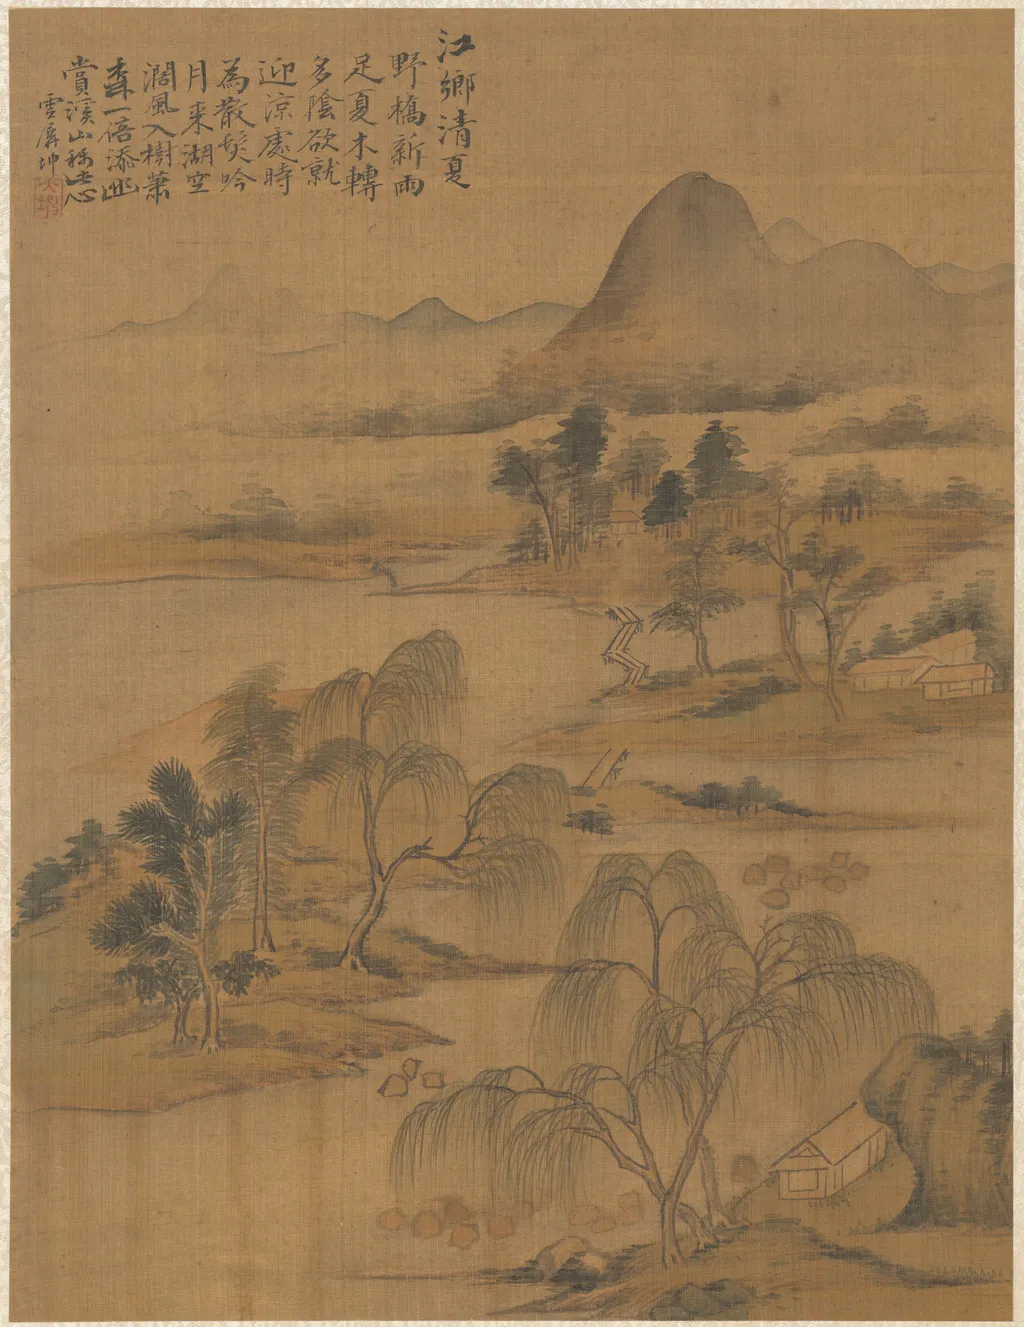 江鄉清夏
野橋新雨
足夏木轉
多陰欲就
迎涼處時
為散髮吟
月来湖空
濶風入樹蕭
森一倍添幽
賞溪山稱此心
雪屏坤